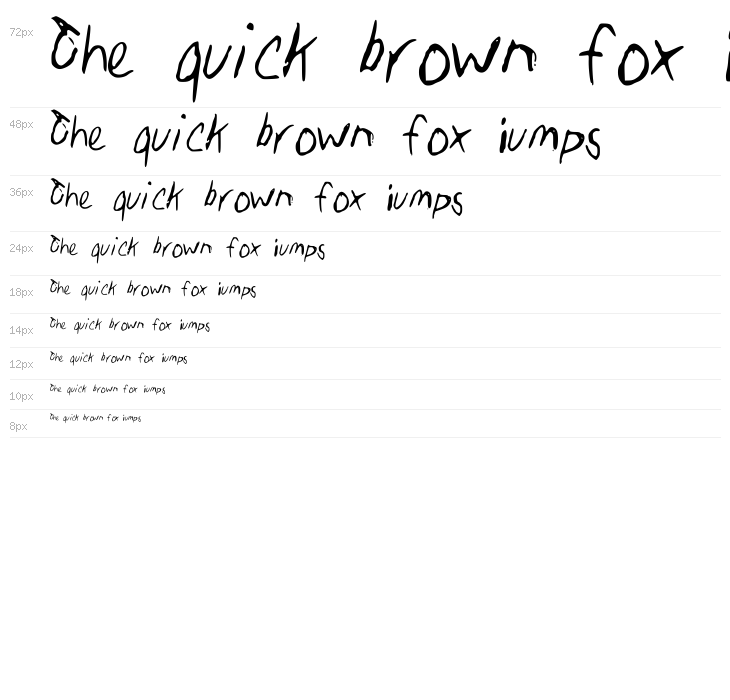 72px The quick brown fox
48px The quick brown fox iumps
36px The quick brown fox iumps
24px The quick brown fox iumps
18px The quick brown fox iumps
14px The quick brown fox iumps
12px The quick brown fox iumps
10px The quick brown fox iumps
8px The quick brown fox iumps